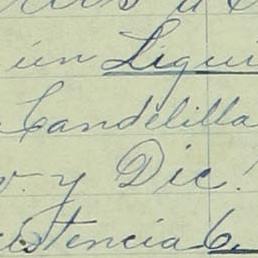 ún Liqui
Candelilla
v. y Dic.
istencia 6.